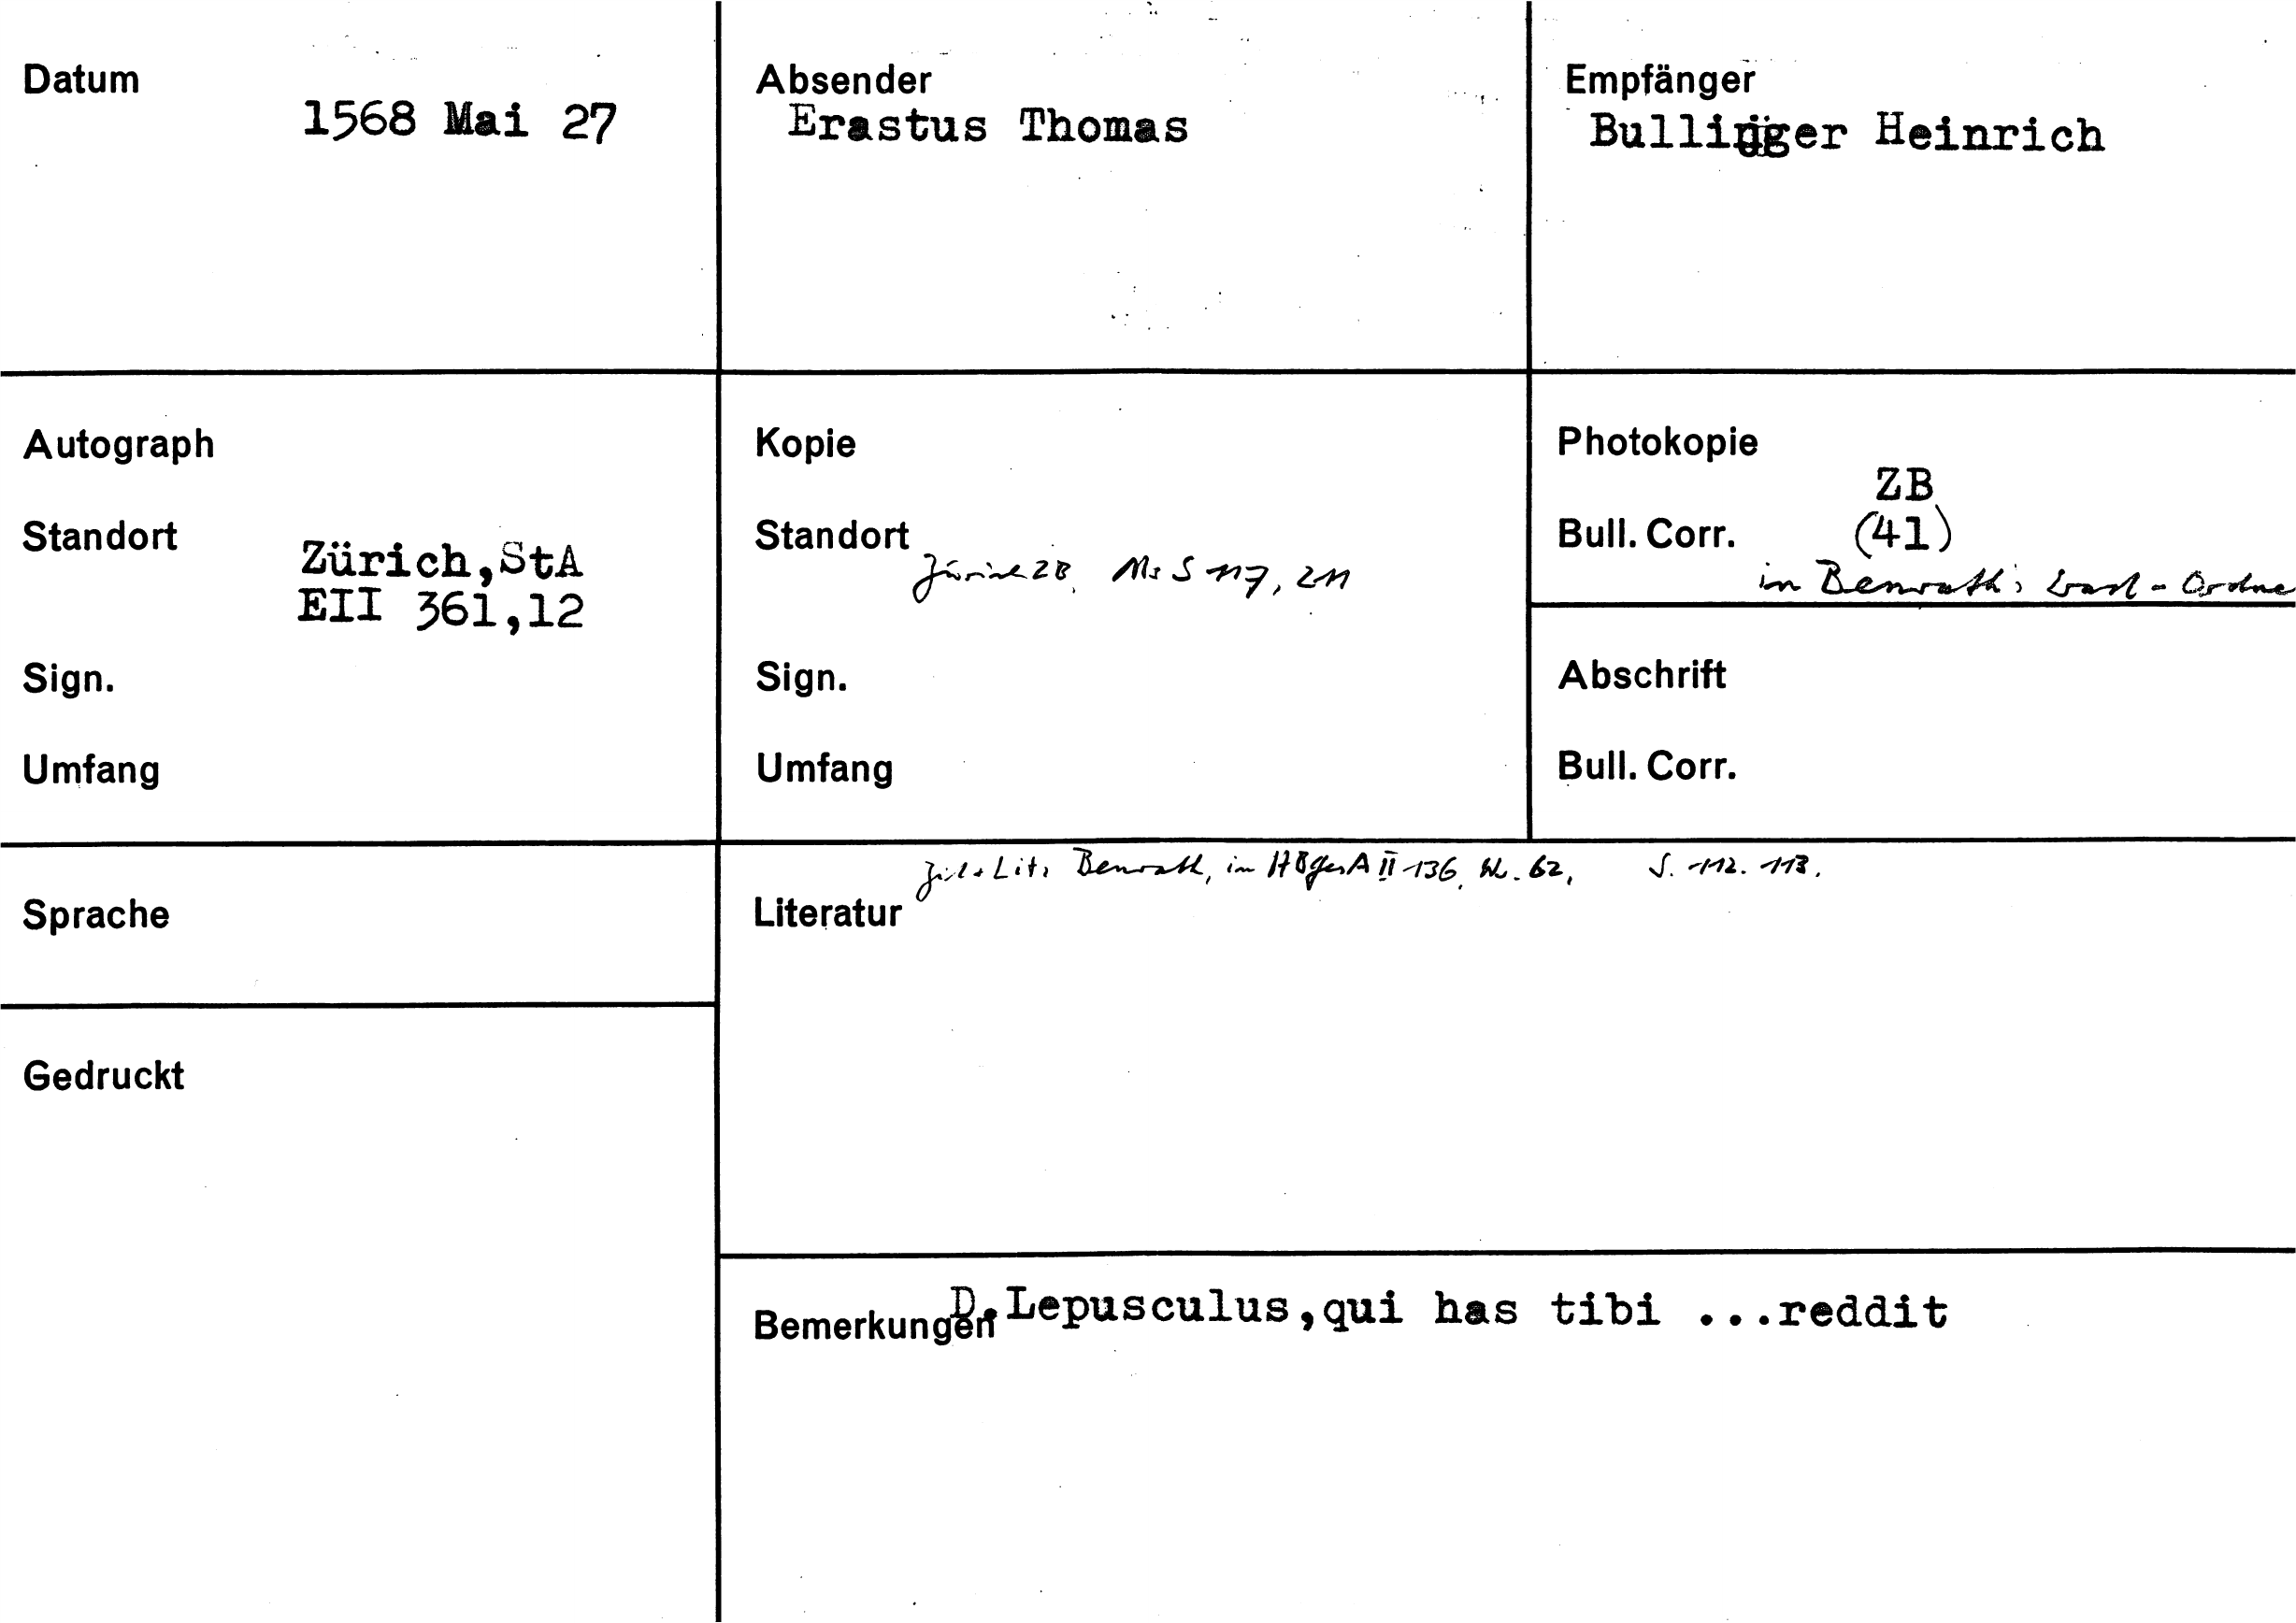 Datum
1568 Mai 27
Absender
Erastus Thomas
Empfänger
Bullinger Heinrich
Autograph
Standort
Zürich,StA
EII 361,12
Sign.
Umfang
Kopie
Standort Zürich ZB, Ms S 117, 211
Sign.
Umfang
Photokopie
ZB
Bull. Corr. (41)
in Benrath's -Ordne
Abschrift
Bull. Corr.
Sprache
Gedruckt
Lit: Benrath, in HBGesA II 136, Nr. 62, S. 112. 113.
Literatur
Bemerkungen D.Lepusculus,qui has tibi ...reddit